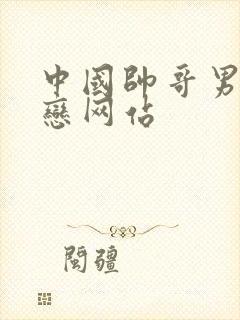 中國帥哥男
戀网佔
閩疆